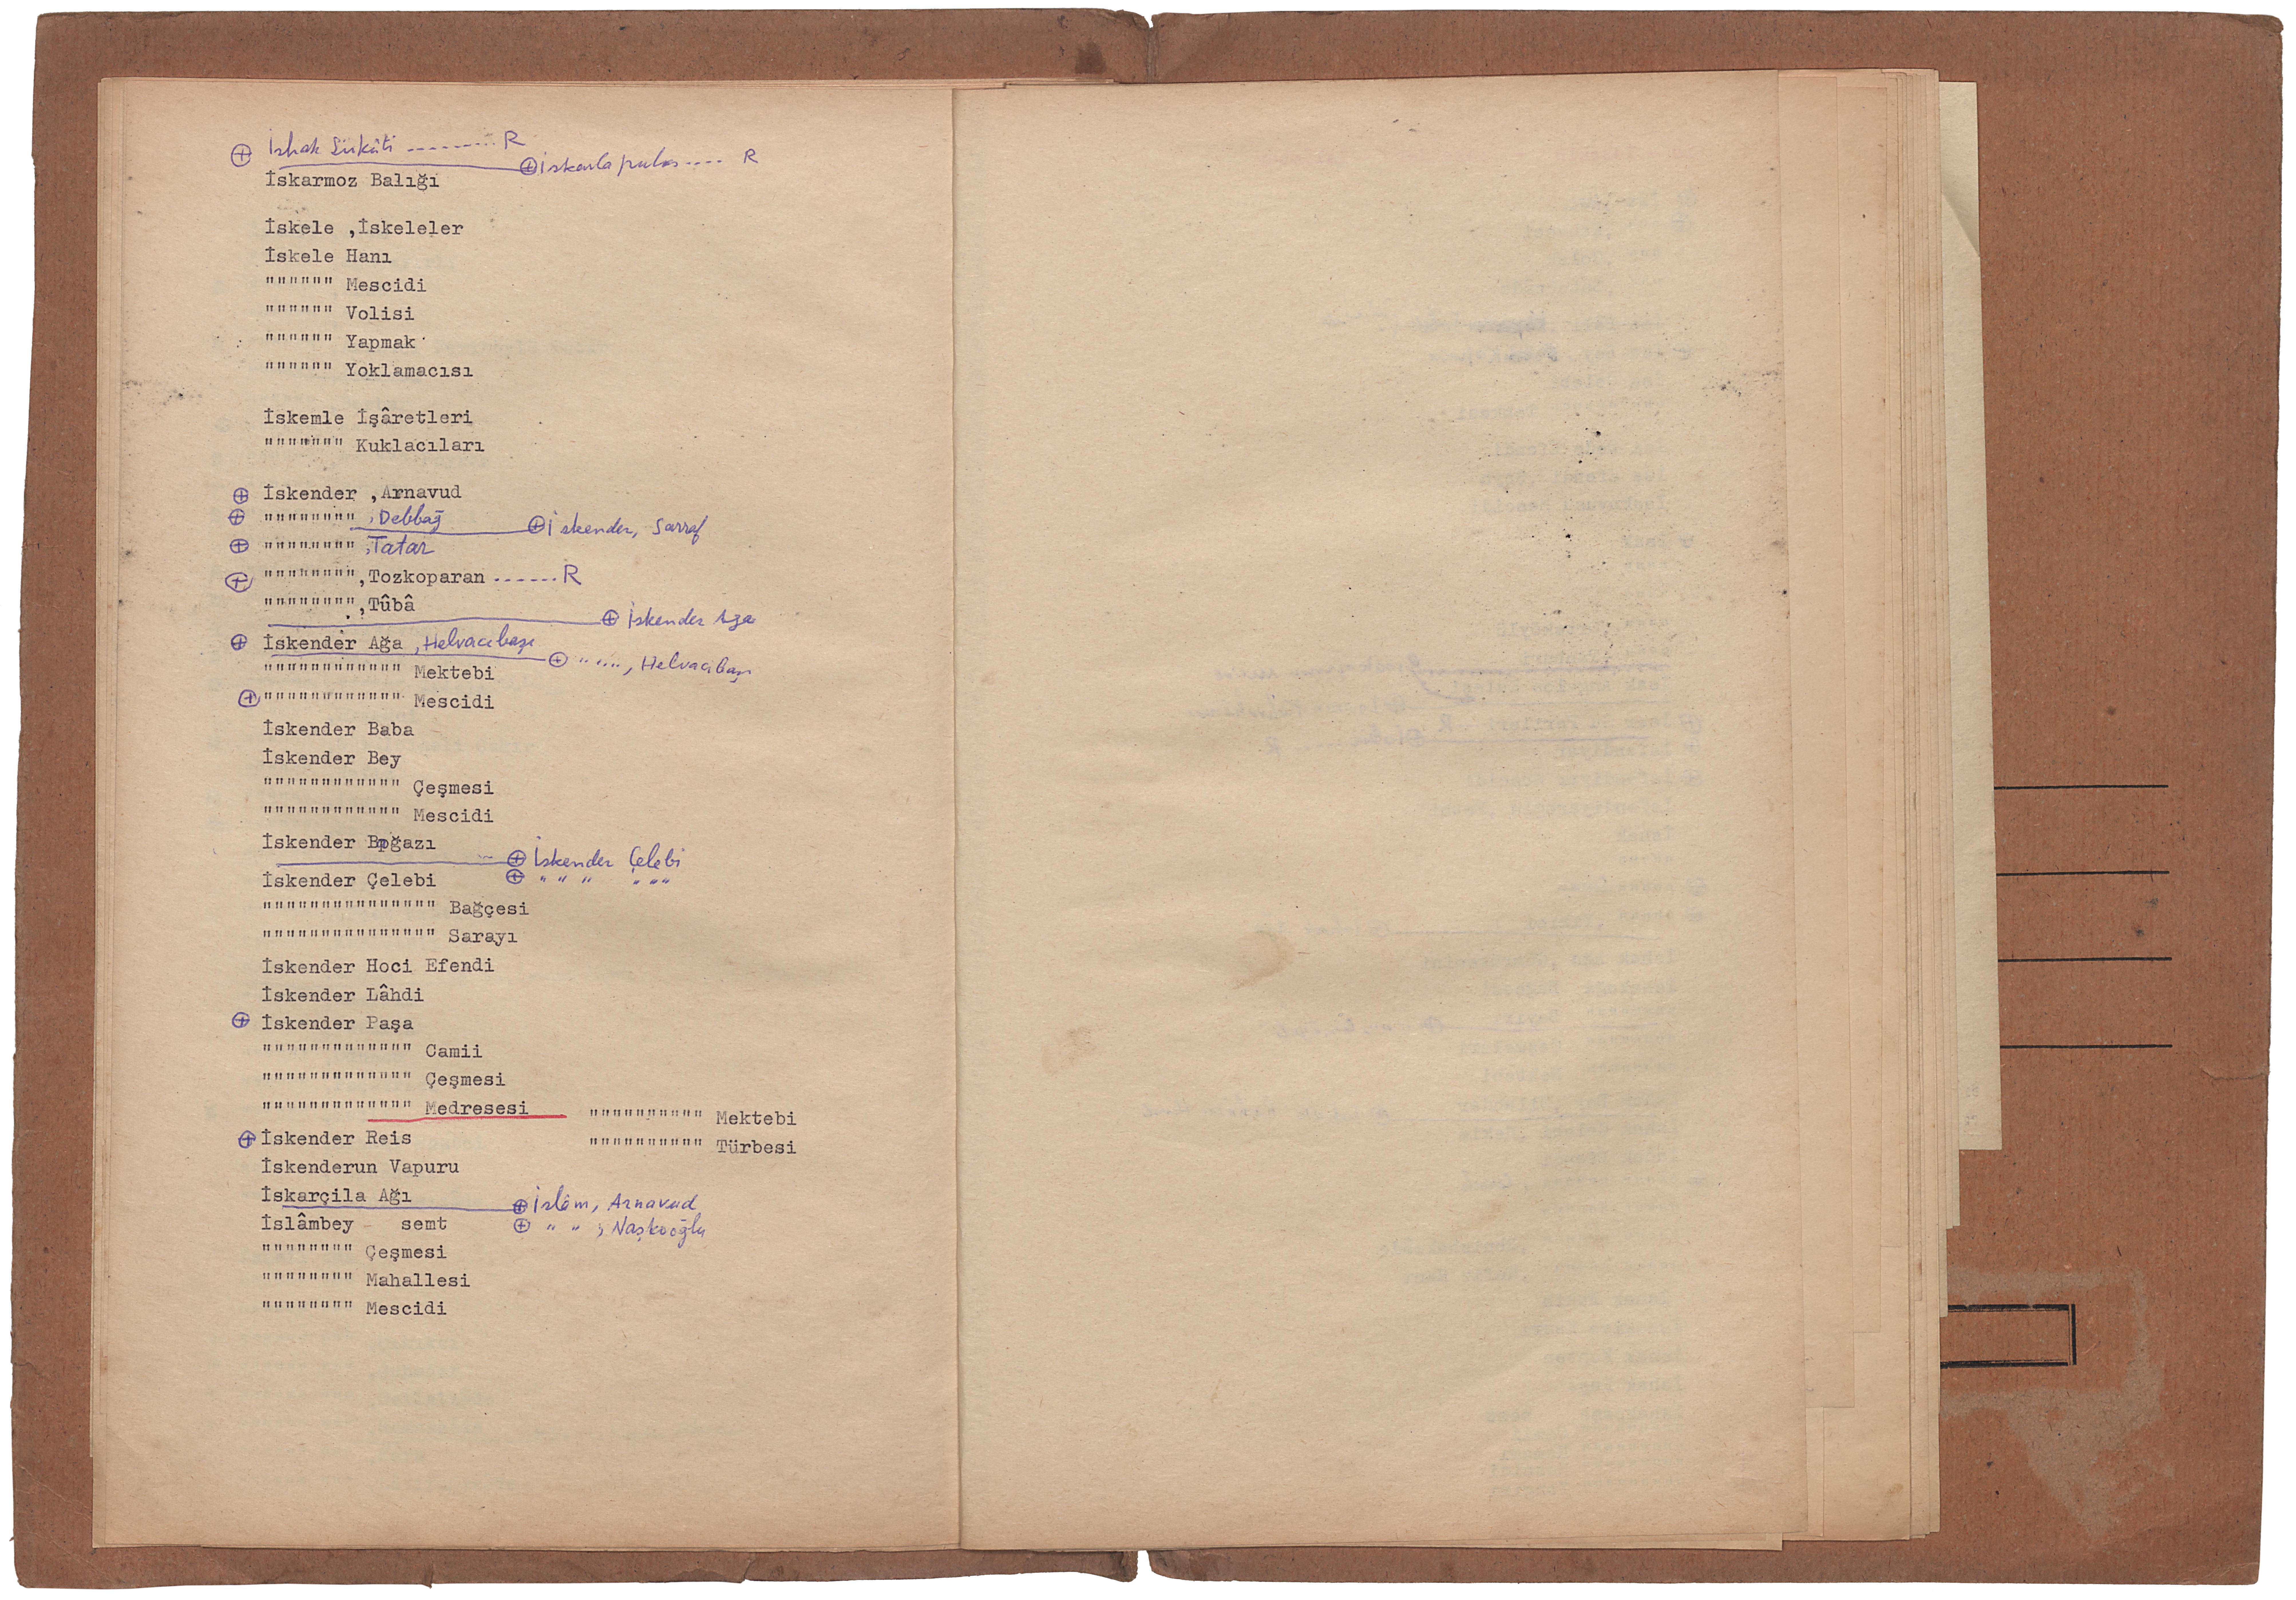 ⊕ İshak Sükûti ......... R
⊕ İskarlapalas .... R
İskarmoz Balığı
İskele ,İskeleler
İskele Hanı
"""""" Mescidi
"""""" Volisi
"""""" Yapmak
"""""" Yoklamacısı
İskemle İşâretleri
""""""" Kuklacıları
⊕ İskender ,Arnavud
⊕ """""""" ,Debbağ
⊕ İskender, Sarraf
⊕ """""""" ,Tatar
⊕ """""""",Tozkoparan ......R
"""""""",Tûbâ
⊕ İskender Ağa
⊕ İskender Ağa ,Helvacıbaşı
⊕ " """, Helvacıbaşı
"""""""""""" Mektebi
⊕ """""""""""" Mescidi
İskender Baba
İskender Bey
"""""""""""" Çeşmesi
"""""""""""" Mescidi
İskender Boğazı
⊕ İskender Çelebi
İskender Çelebi ⊕ " " " " " "
""""""""""""""" Bağçesi
""""""""""""""" Sarayı
İskender Hoci Efendi
İskender Lâhdi
⊕ İskender Paşa
""""""""""""" Camii
""""""""""""" Çeşmesi
""""""""""""" Medresesi """""""""" Mektebi
⊕ İskender Reis """""""""" Türbesi
İskenderun Vapuru
İskarçila Ağı ⊕ İslâm, Arnavud
İslâmbey - semt ⊕ " " , Naşkooğlu
"""""""" Çeşmesi
"""""""" Mahallesi
"""""""" Mescidi